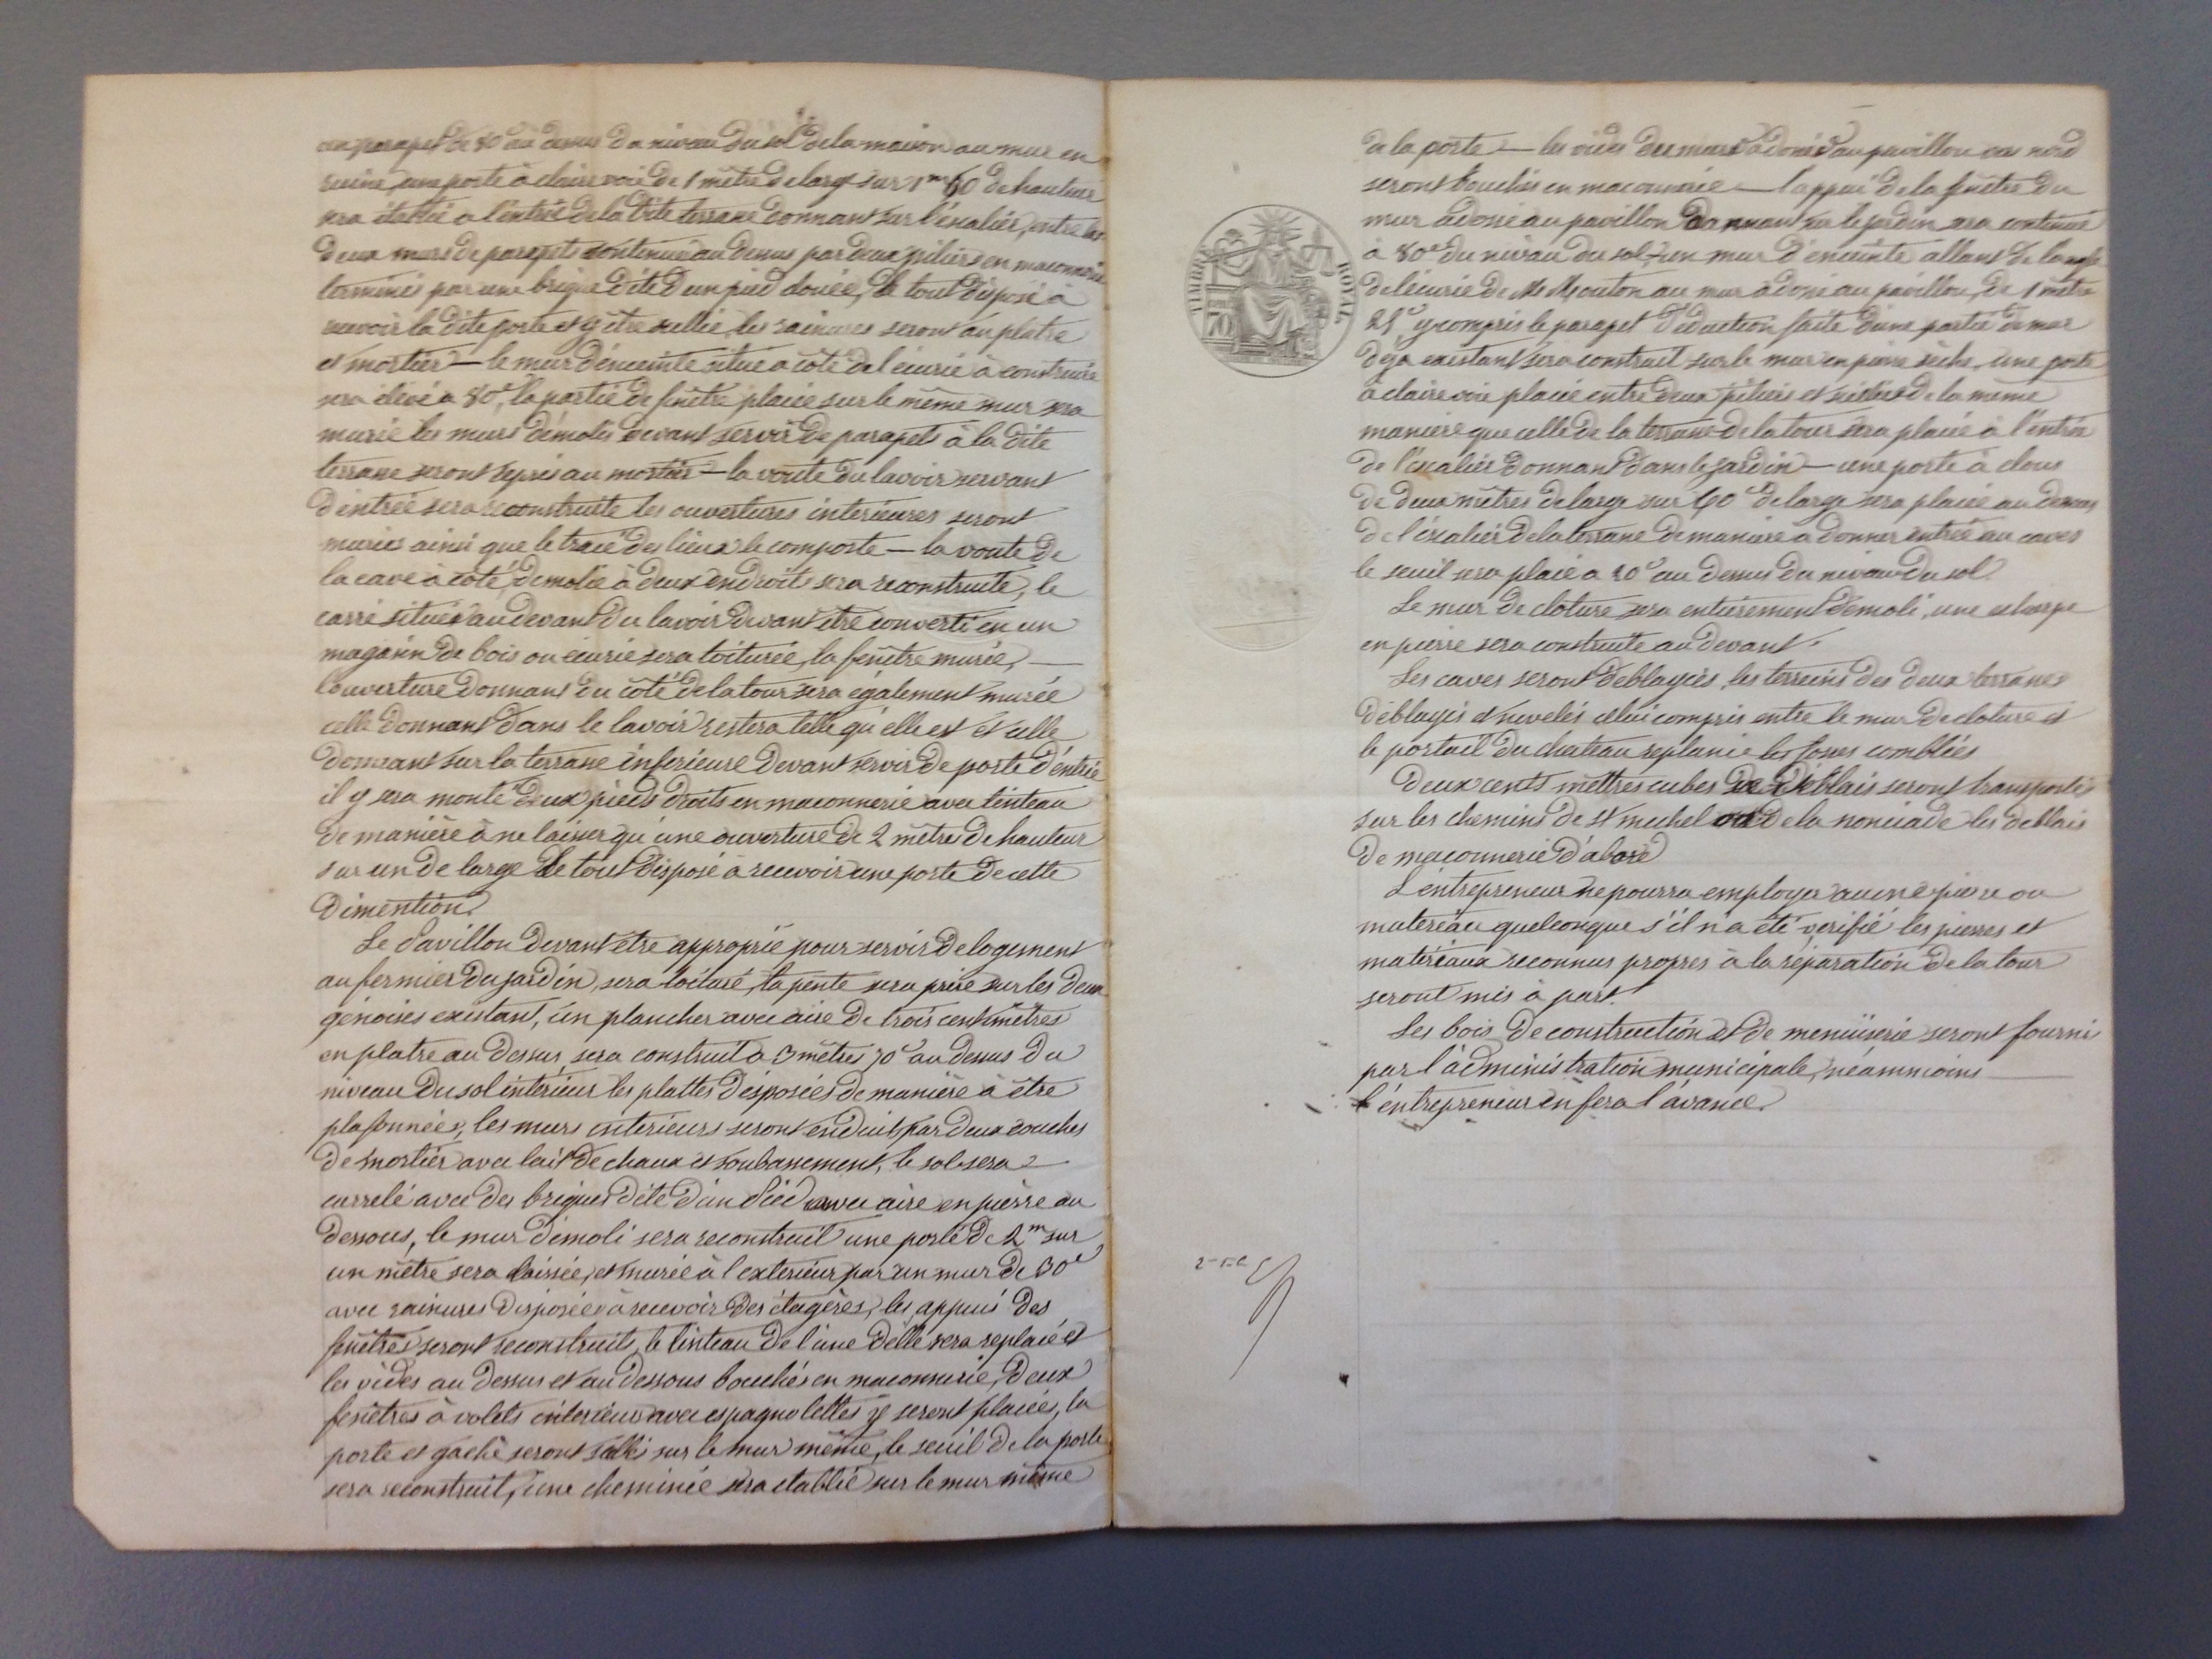 un parapet de 80c au dessus du niveau du sol de la maison au mur en
ruine, une porte à claire voie de 1 mètre de large sur 1m 60 de hauteur
sera établie a l'entrée de la dite terrasse donnant sur l'escalier, entre les
deux murs de parapets soutenue au dessus par deux piliers en maconnerie
terminés par une brique dite d'un pied douée, le tout disposé à
recevoir la dite porte et y être sellée, les rainures seront au platre
et mortier — le mur d'enceinte situé a côté de l'écurie à construire
sera élevé a 80c, la partie de fenêtre placée sur le même mur sera
murée les murs démolis devant servir de parapets à la dite
terrasse seront repris au mortier — la voute du lavoir servant
d'entrée sera reconstruite les ouvertures interieures seront
murées ainsi que le tracé des lieux le comporte — la voute de
la cave à coté, démolie à deux endroits sera reconstruite, le
carré situé au devant du lavoir devant être converti en un
magasin de bois ou écurie sera toiturée, la fenêtre murée, —
l'ouverture donnant du côté de la tour sera également murée
celle donnant dans le lavoir restera telle qu'elle est et celle
donnant sur la terrasse inferieure devant servir de porte d'entrée
il y sera monté deux pieds droits en maconnerie avec linteau
de manière à ne laisser qu'une ouverture de 2 mètre de hauteur
sur un de large le tout disposé à recevoir une porte de cette
dimention.
Le Pavillon devant être approprié pour servir de logement
au fermier du jardin, sera toituré, la pente sera prise sur les deux
génoises existant, un plancher avec aire de trois centimètres
en platre au dessus, sera construit a 3 mètres 70c au dessus du
niveau du sol intérieur les plattes disposées de manière à être
plafonnées, les murs interieurs seront enduits par deux couches
de mortier avec lait de chaux et soubassement, le sol sera
carrelé avec des briques dite d'un pied avec aire en pierre au
dessous, le mur démoli sera reconstruit une porte de 2m sur
un mètre sera laissée, et murée à l'exterieur par un mur de 30c
avec rainures disposées à recevoir des étagères, les appuis des
fenêtres seront reconstruits, le linteau de l'une d'elle sera replacé et
les vides au dessus et au dessous bouchés en maconnerie, deux
fenêtres à volets intérieur avec espagnolettes y seront placées, la
porte et gache seront sellés sur le mur même, le seuil de la porte
sera reconstruit, une cheminée sera établie sur le mur même
de la porte — les vides des murs adossés au pavillon au nord
seront bouchés en maconnerie — l'appui de la fenêtre du
mur adossé au pavillon donnant sur le jardin sera continué
à 80c du niveau du sol, un mur d'enceinte allant de l'angle
de l'écurie de Mr Mouton au mur adossé au pavillon, de 1 mètre
25c y compris le parapet déduction faite d'une partie de mur
déja existant sera construit sur le mur en pierre sèche, une porte
à claire voie placée entre deux piliers et sellée de la même
manière que celle de la terrasse de la tour sera placée à l'entrée
de l'escalier donnant dans le jardin — une porte à clous
de deux mètres de large sur 60c de large sera placée au dessous
de l'escalier de la terrasse de manière a donner entrée au caves
le seuil sera placé a 20c au dessus du niveau du sol.
Le mur de cloture sera entièrement démoli, une echarpe
en pierre sera construite au devant.
Les caves seront déblayées, les terreins des deux terrasses
déblayés et nivelés celui compris entre le mur de cloture et
le portail du chateau replanie les fosses comblées
Deux cents mettres cubes de déblais seront transportés
sur les chemins de st michel ou de la nonciade les deblais
de maconnerie d'abord
L'entrepreneur ne pourra employer aucune pierre ou
materéau quelconque s'il n'a été verifié les pierres et
matériaux reconnus propres à la réparation de la tour
seront mis à part.
Les bois de construction et de menuiserie seront fourni
par l'administration municipale, néammoins
l'entrepreneur en fera l'avance.
TIMBRE ROYAL
70